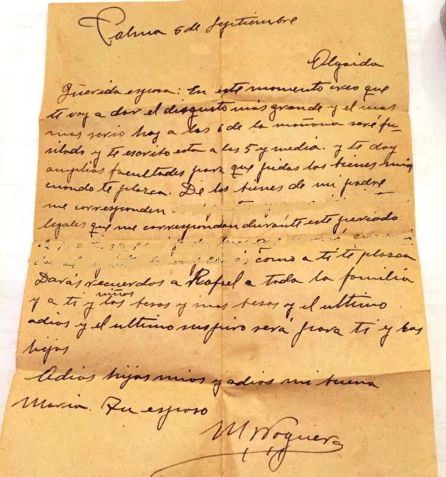 Palma 5 de Septiembre
Algaida
Querida esposa: En este momento creo que
te voy a dar el disgusto mas grande y el mas
mas serio hoy a las 6 de la mañana seré fu-
silado y te escribo esta a las 5 y media. y te doy
amplias facultades para que pidas los bienes mios
cuando te plazca. De los bienes de mi padre
me corresponden
legales que me correspondan durante este periodo
como a ti te plazca
Daras recuerdos a Rafael a toda la familia
y a ti y los niños besos y mas besos y el ultimo
adios y el ultimo suspiro será para ti y los
hijos
Adios hijos mios y adios mi buena
Maria. Tu esposo
M. Noguera